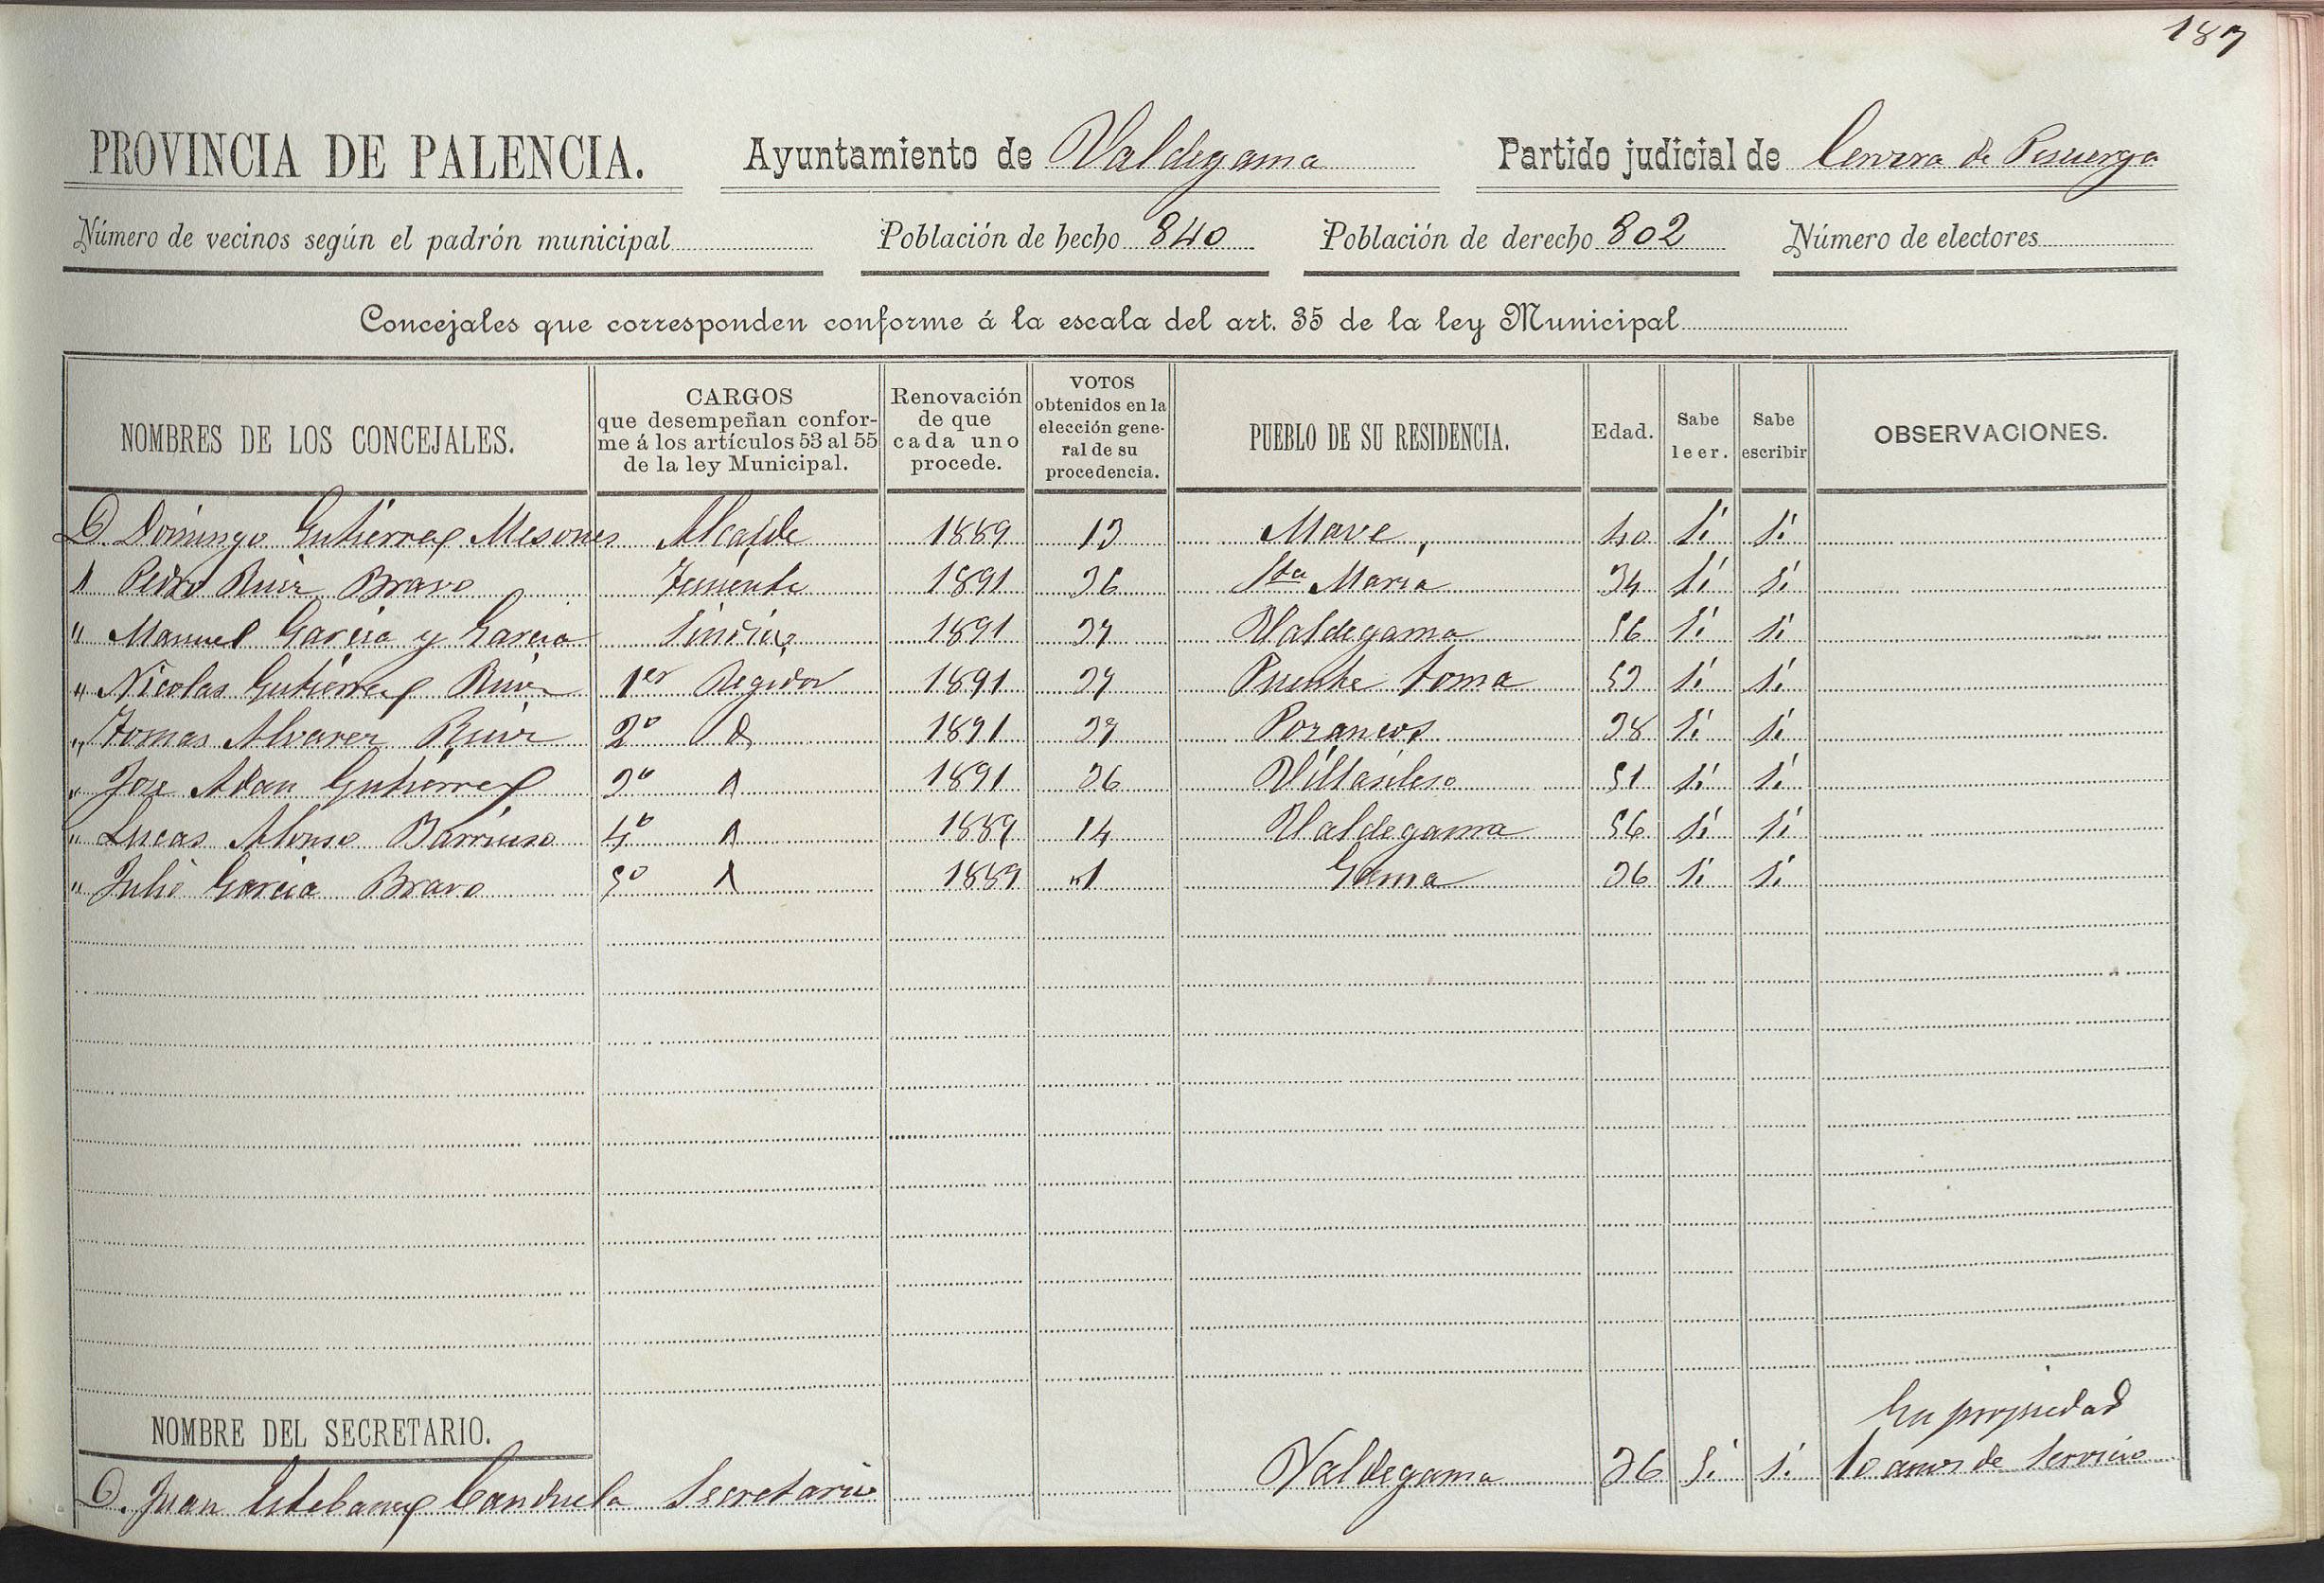 187
PROVINCIA DE PALENCIA. Ayuntamiento de Valdegama Partido judicial de Cervera de Pisuerga
Número de vecinos según el padrón municipal Población de hecho 840 Población de derecho 802 Número de electores
Concejales que corresponden conforme á la escala del art. 35 de la ley Municipal
NOMBRES DE LOS CONCEJALES. CARGOS que desempeñan confor- me á los artículos 53 al 55 de la ley Municipal. Renovación de que cada uno procede. VOTOS obtenidos en la elección gene- ral de su procedencia. PUEBLO DE SU RESIDENCIA. Edad. Sabe leer. Sabe escribir OBSERVACIONES.
D. Domingo Gutierrez Mesones Alcalde 1889 13 Mave 40 Si Si
" Pedro Ruiz Bravo Teniente 1891 36 Sta Maria 34 Si Si
" Manuel Garcia y Garcia Sindico 1891 37 Valdegama 56 Si Si
" Nicolas Gutierrez Ruiz 1er Regidor 1891 37 Puente toma 53 Si Si
" Tomas Alvarez Ruiz 2º 1891 37 Pozancos 38 Si Si
" Jose Adan Gutierrez 3º 1891 36 Villasileso 51 Si Si
" Lucas Alonso Barriuso 4º 1889 14 Valdegama 56 Si Si
" Julio Garcia Bravo 5º 1889 Gama 36 Si Si
NOMBRE DEL SECRETARIO.
D. Juan Estebanez Canduela Secretario Valdegama 36 Si Si En propiedad
10 años de servicio